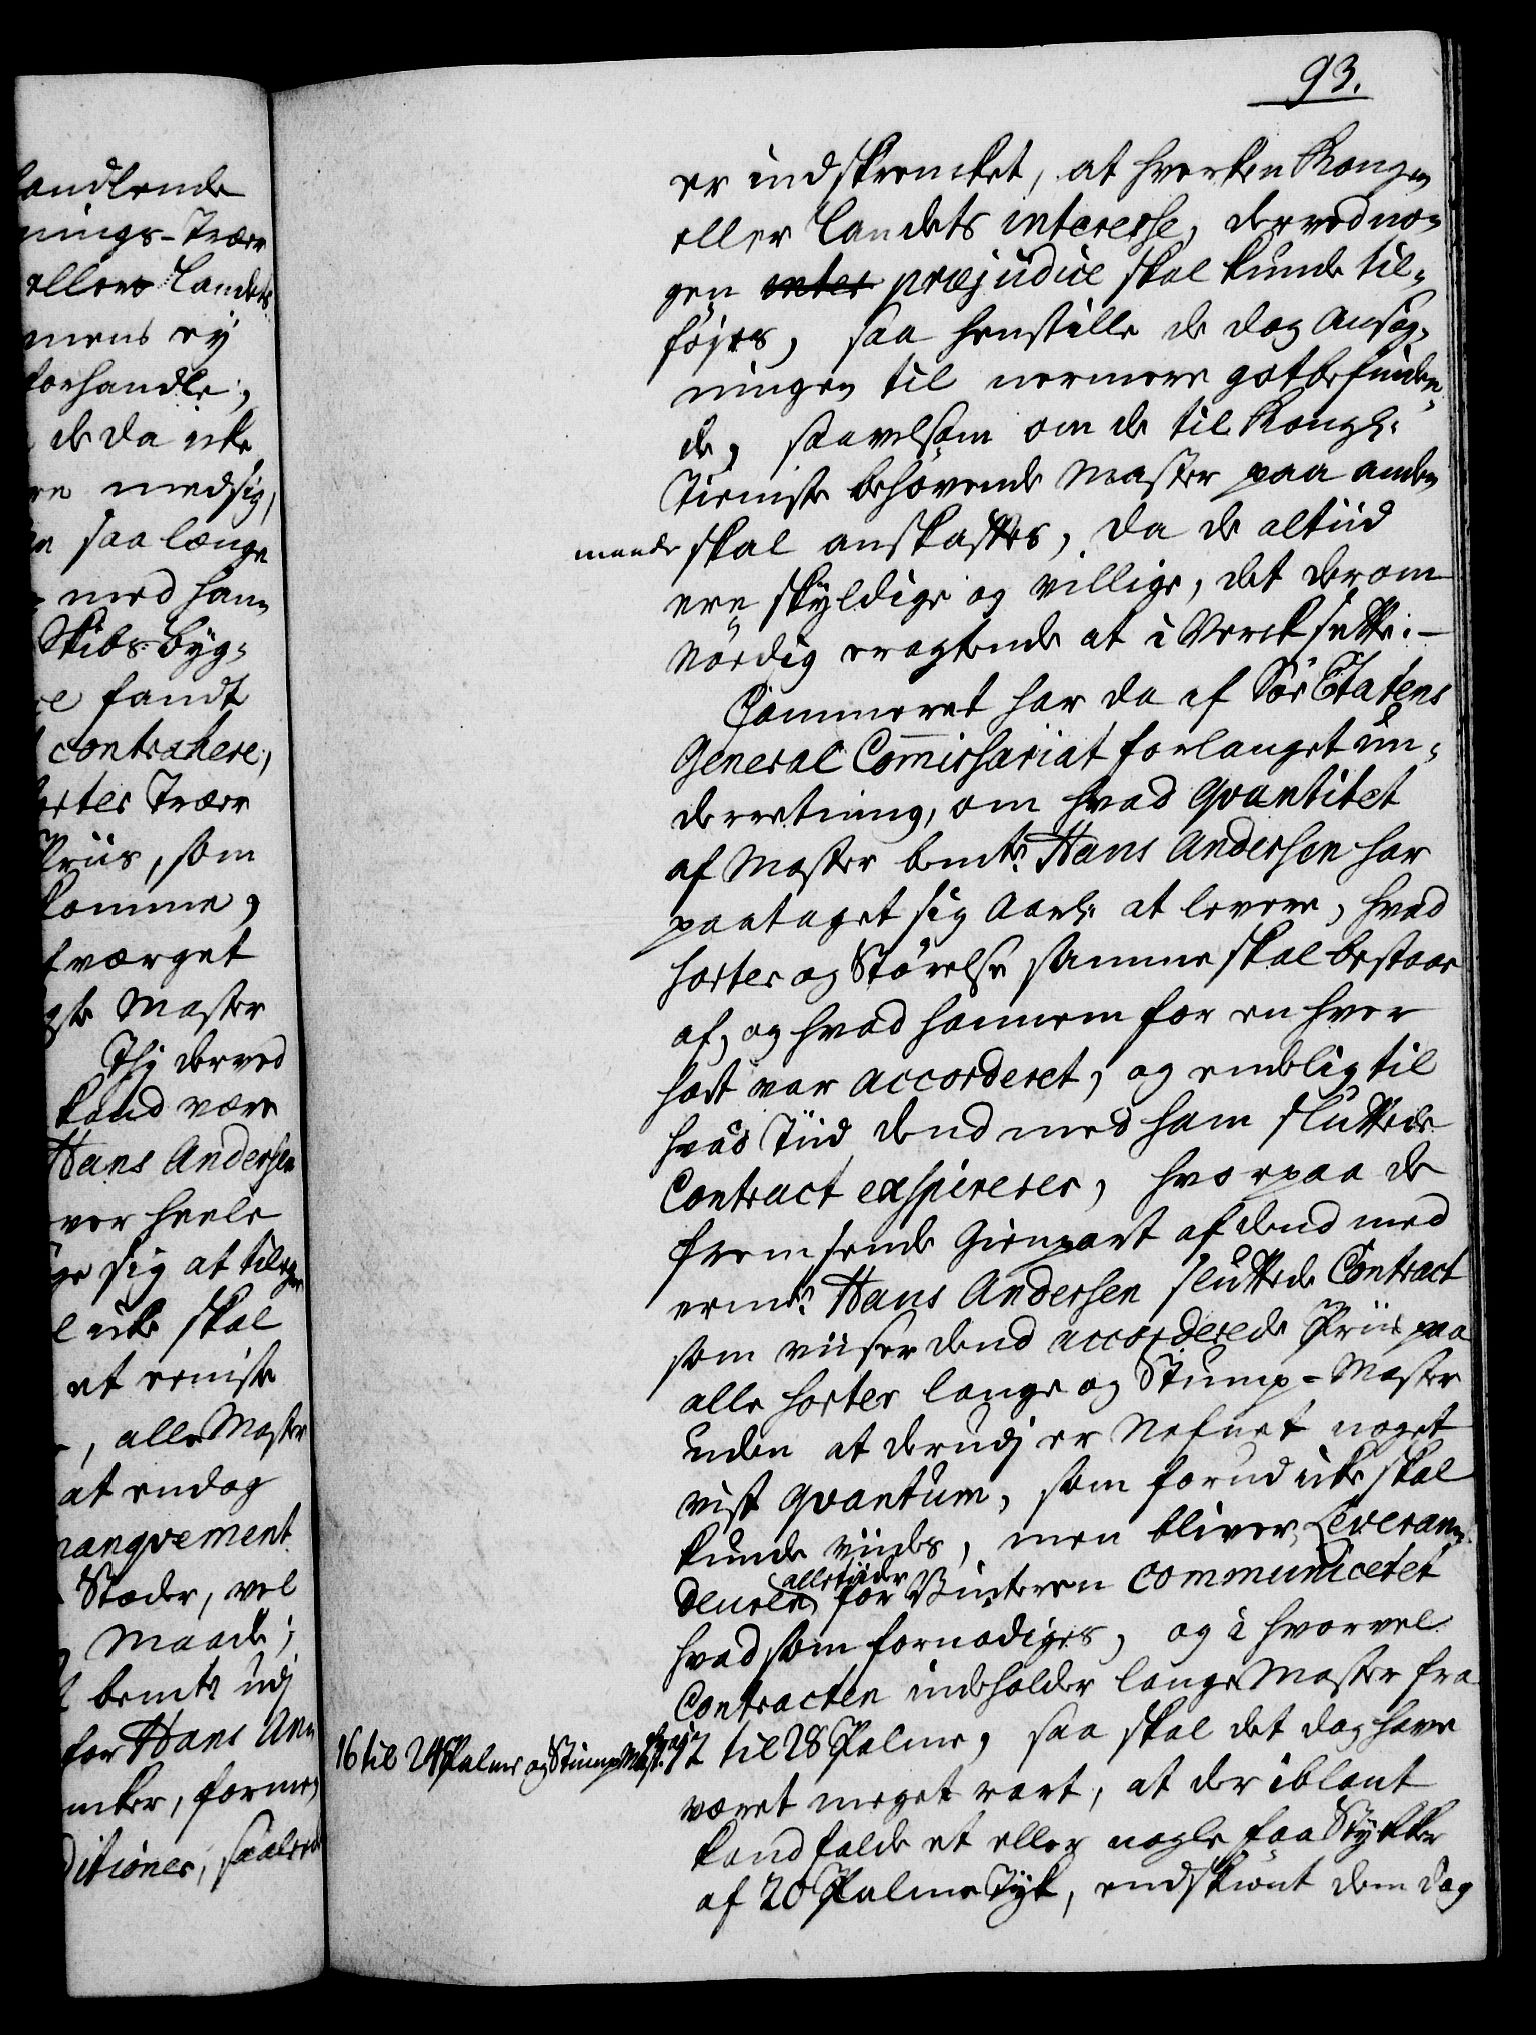 93.
er indskrencket, at hverken Kongen
eller Landets interesse, derved no¬
gen inter præjudice skal kunde til¬
føjes, saa henstille de dog Ansøg¬
ningen til nermere gotbefinden¬
de, saavelsom om de til Kongl:
Tieniste behøvende Master paa anden
maade skal anskaffes, da de altiid
ere skyldige og villige, det derom
nørdig eragtende at i Verck sette.-
Cammeret har da af Søe Etatens
General Commissariat forlanget un¬
derretning, om hvad qvantitet
af Master bemte Hans Andersen har
paataget sig Aarl: at levere, hvad
sorter og Størelse samme skal bestaae
af, og hvad hannem for en hver
sort var accorderet, og endelig til
hvad Tiid dend med ham sluttede
Contract exspirerer, hvorpaa de
fremsende Gienpart af dend med
ermte Hans Andersen sluttede Contract
som viiser dend accorderede Priis paa
alle sorter lange og Stump-Master
uden at derudj er Nefnet noget
vist qvantum, som forud icke skal
kunde viides, men bliver Leveran¬
deuren alletiider for Vinteren communiceret
hvad som fornødiges, og i hvorvel
Contracten indeholder lange Master fra
16 til 24 Palmer og Stump Mast: fra 12 til 28 Palme, saa skal det dog have
været meget rart, at der iblant
kand falde et eller nogle faa Stykker
af 20 Palme Tyk, endskiønt dem dog
andlende
nings-Træer
eller Landets
mens ey
forhandle,
de da icke
medsig,
saa længe
med han¬
Skibs-byg¬
fandt
contrahere,
Træer
Priis, som
komme,
værget
Master
Thj derved
kand være
Hans Andersen
ver heele
sig at til
icke skal
et eeniste
, alle Master
at endog
manqvement
Stæder, vel
Maade;
bemte udj
for Hans An¬
ditioner, saaled